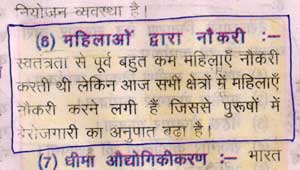 नियोजन व्यवस्था है।
(6) महिलाओं द्वारा नौकरी :–
स्वतत्रता से पूर्व बहुत कम महिलाएँ नौकरी
करती थी लेकिन आज सभी क्षेत्रों में महिलाएँ
नौकरी करने लगी हैं जिससे पुरूषों में
बेरोजगारी का अनुपात बढ़ा है।
(7) धीमा औद्योगिकीकरण :– भारत